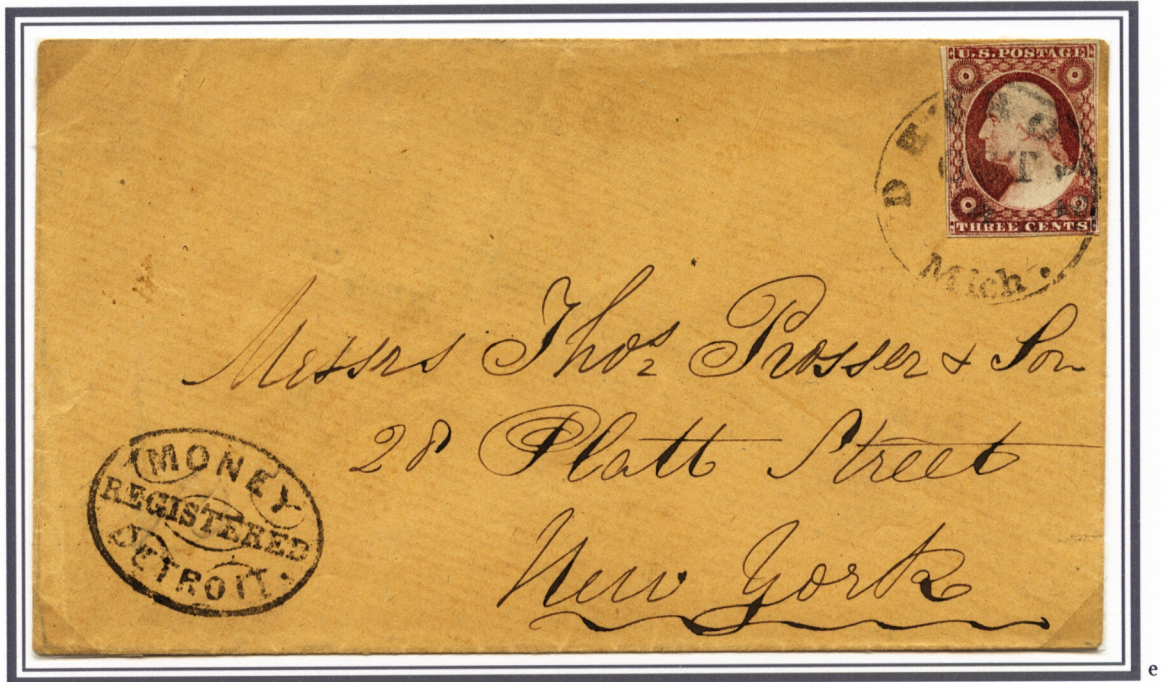 U.S. POSTAGE
THREE CENTS
DETROIT
OCT
Mich.
Messrs Thos. Prosser & Son
28 Platt Street
New York
MONEY
REGISTERED
DETROIT.
e